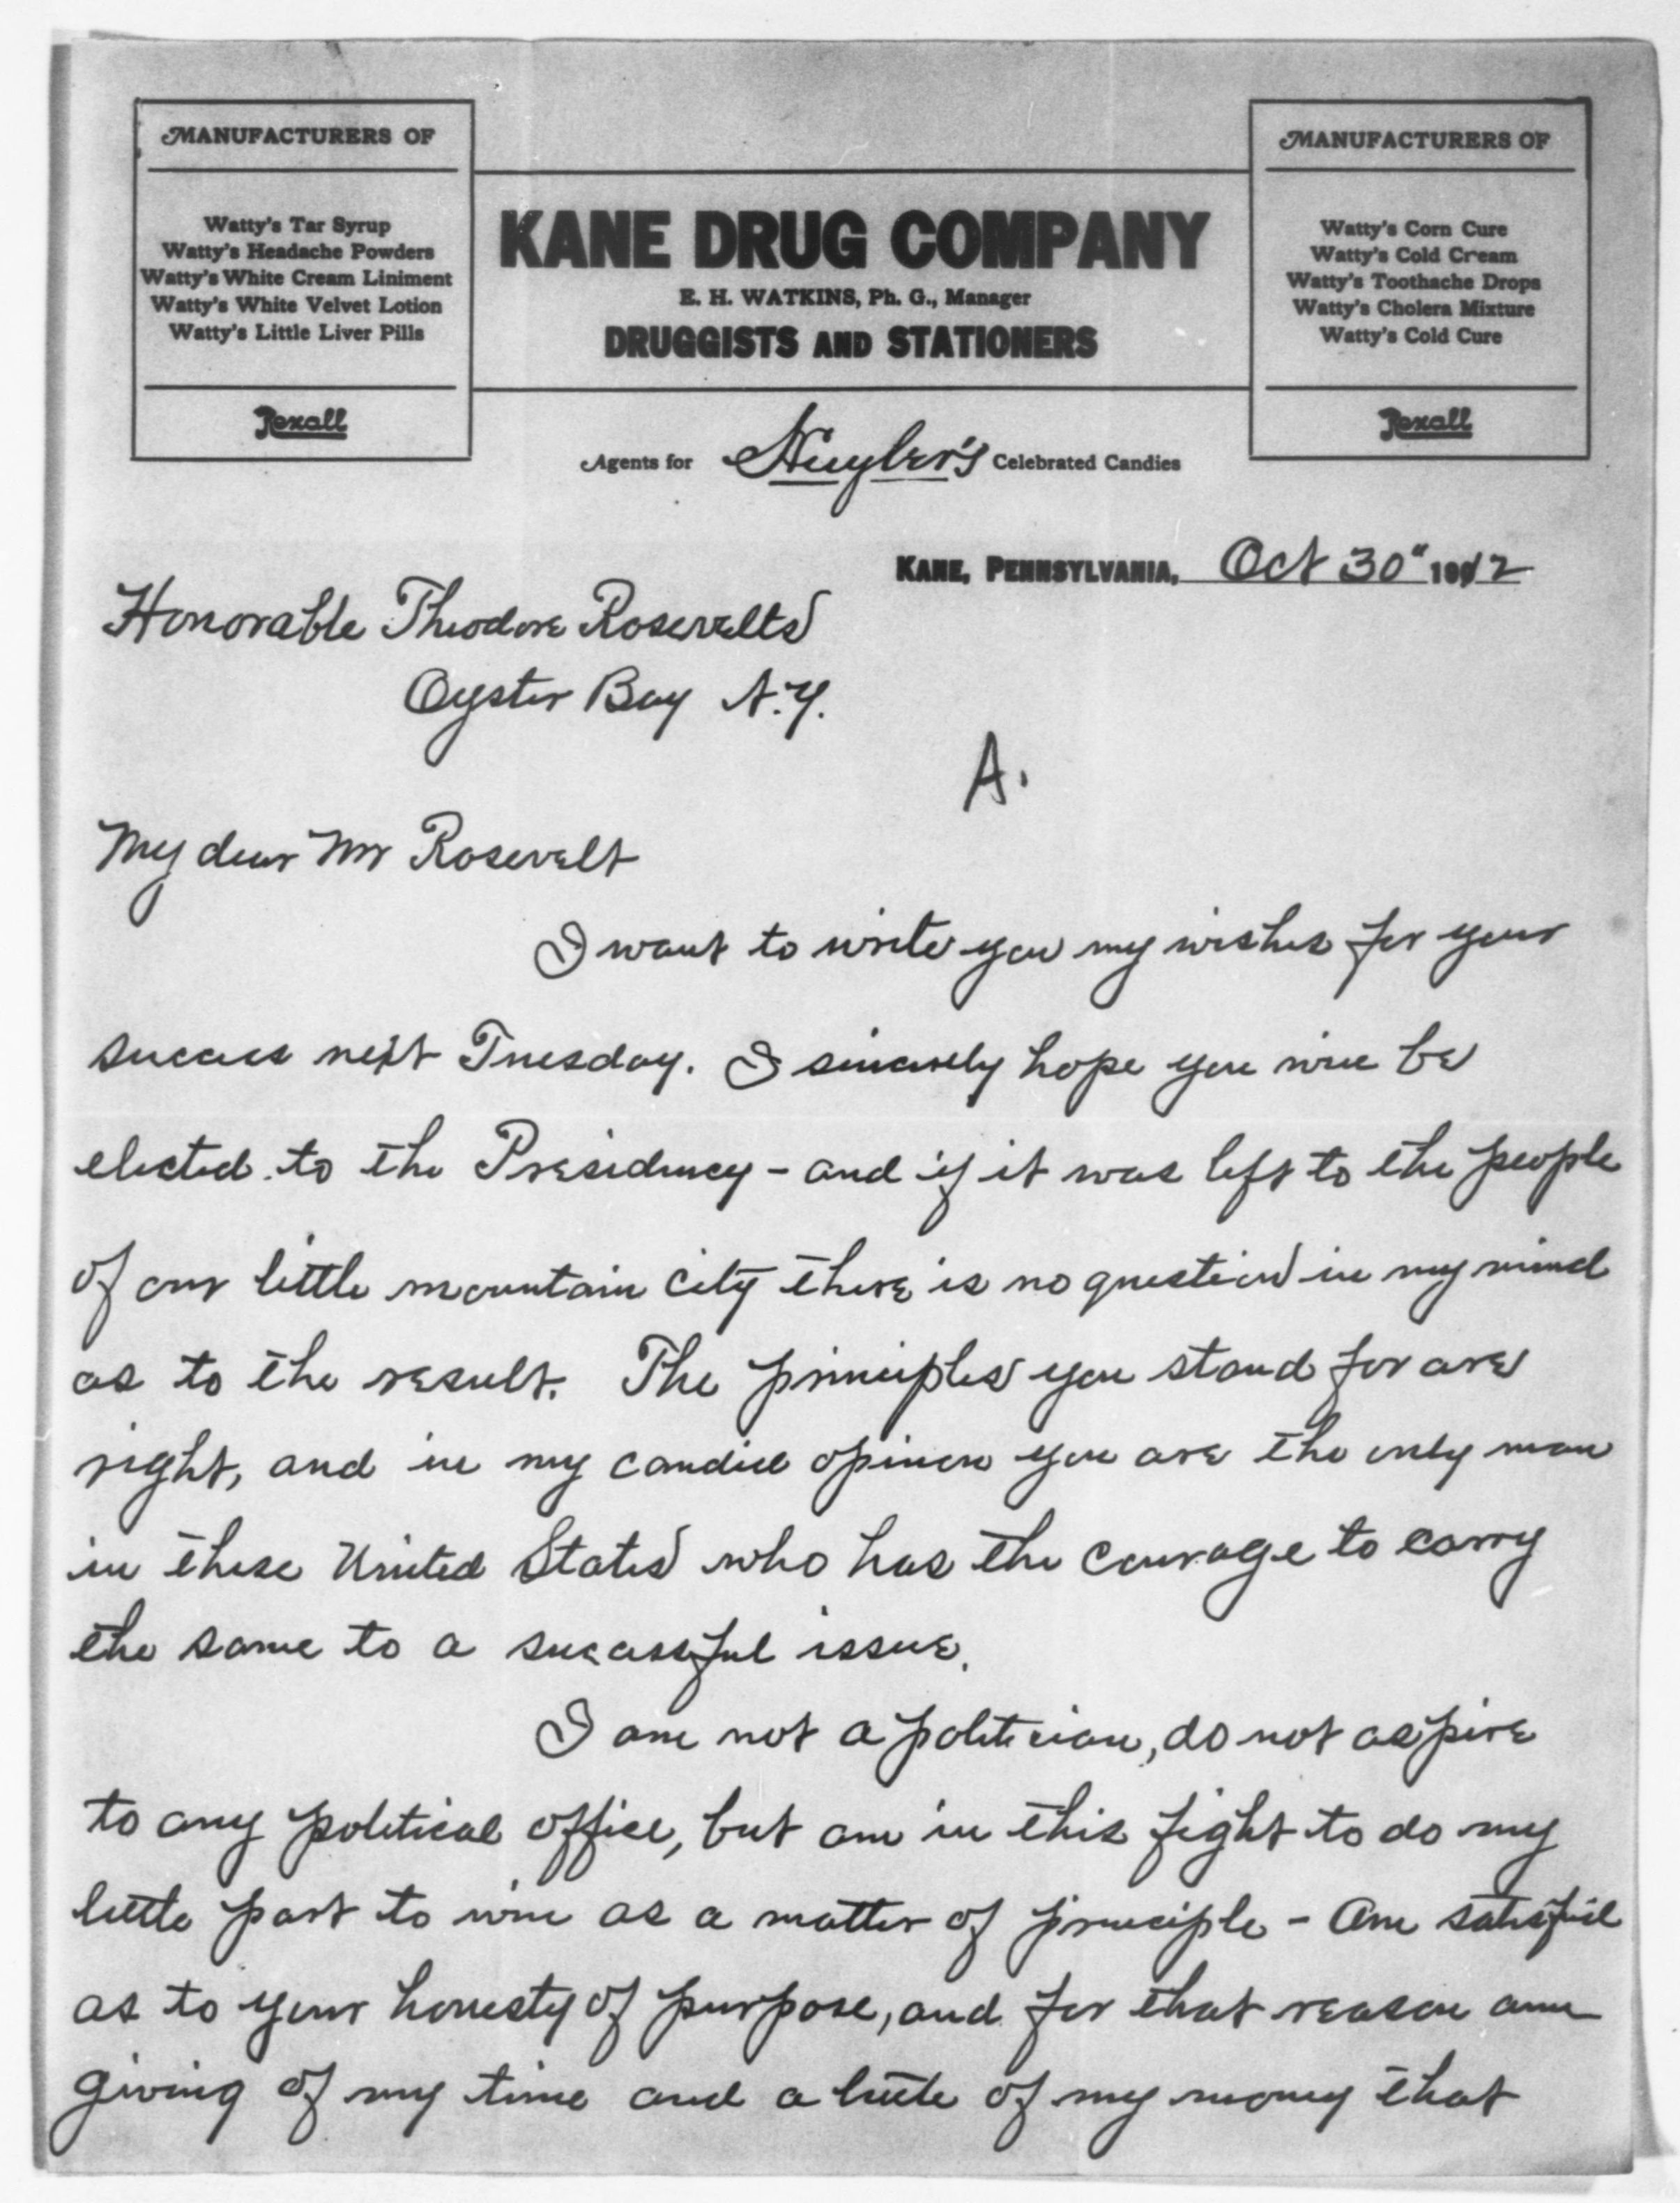 MANUFACTURERS OF
Watty's Tar Syrup
Watty's Headache Powders
Watty's White Cream Liniment
Watty's White Velvet Lotion
Watty's Little Liver Pills
Rexall
KANE DRUG COMPANY
E. H. WATKINS, Ph. G., Manager
DRUGGISTS AND STATIONERS
Agents for Huyler's Celebrated Candies
MANUFACTURERS OF
Watty's Corn Cure
Watty's Cold Cream
Watty's Toothache Drops
Watty's Cholera Mixture
Watty's Cold Cure
Rexall
KANE, PENNSYLVANIA, Oct 30" 1912
Honorable Theodore Rosevelts
Oyster Bay N.Y.
A.
My dear Mr Rosevelt
I want to write you my wishes for your
success next Tuesday. I sincerely hope you will be
elected to the Presidency - and if it was left to the people
of our little mountain city there is no question in my mind
as to the result. The principles you stand for are
right, and in my candid opinion you are the only man
in these United States who has the courage to carry
the same to a sucessful issue.
I am not a politician, do not aspire
to any political office, but am in this fight to do my
little part to win as a matter of principle - Am satisfied
as to your honesty of purpose, and for that reason am
giving of my time and a little of my money that